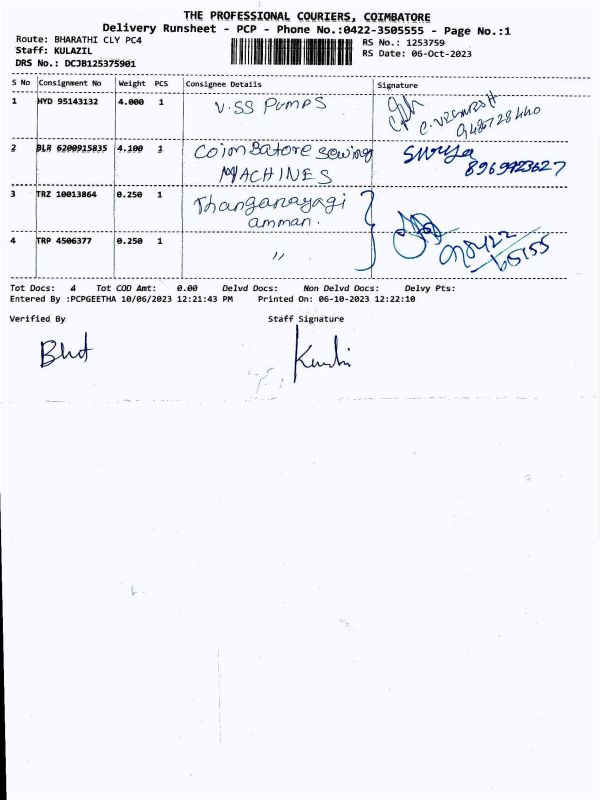 THE PROFESSIONAL COURIERS, COIMBATORE
Delivery Runsheet - PCP - Phone No.:0422-3505555 - Page No.:1
Route: BHARATHI CLY PC4
RS No.: 1253759
Staff: KULAZIL
RS Date: 06-Oct-2023
DRS No.: DCJB125375901
S No Consignment No Weight PCS Consignee Details Signature
1 HYD 95143132 4.000 1 V.SS PUMPS
2 BLR 6200915835 4.100 1 Coimbatore sewing MACHINES Surya 8969923627
3 TRZ 10013864 0.250 1 Thanganayagi amman.
4 TRP 4506377 0.250 1 "
Tot Docs: 4 Tot COD Amt: 0.00 Delvd Docs: Non Delvd Docs: Delvy Pts:
Entered By :PCPGEETHA 10/06/2023 12:21:43 PM Printed On: 06-10-2023 12:22:10
Verified By Staff Signature